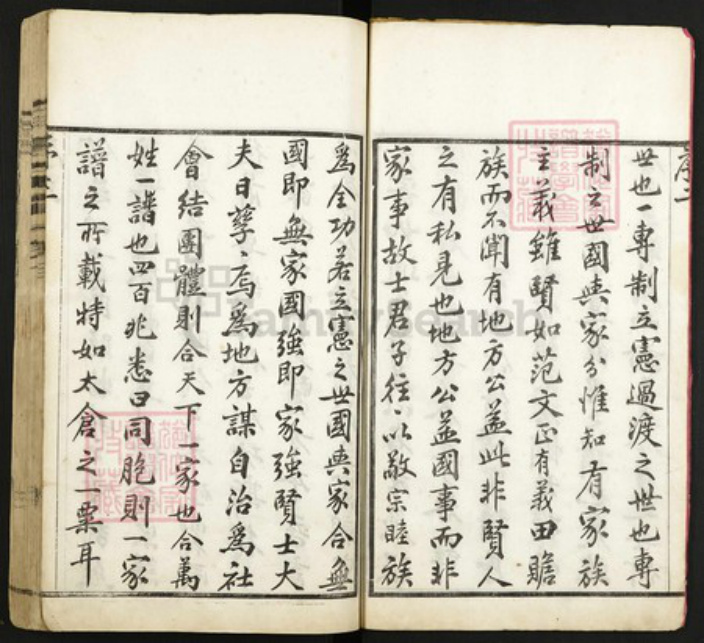 序二
世也一專制立憲過渡之世也專
制之世國與家分惟知有家族
主義雖賢如范文正有義田贍
族而不聞有地方公益此非賢人
之有私見也地方公益國事而非
家事故士君子往〻以敬宗睦族
爲全功若立憲之世國與家合無
國即無家國強即家強賢士大
夫日孳〻焉爲地方謀自治爲社
會結團體則合天下一家也合萬
姓一譜也四百兆悉曰同胞則一家
譜之所載特如太倉之一粟耳
FamilySearch